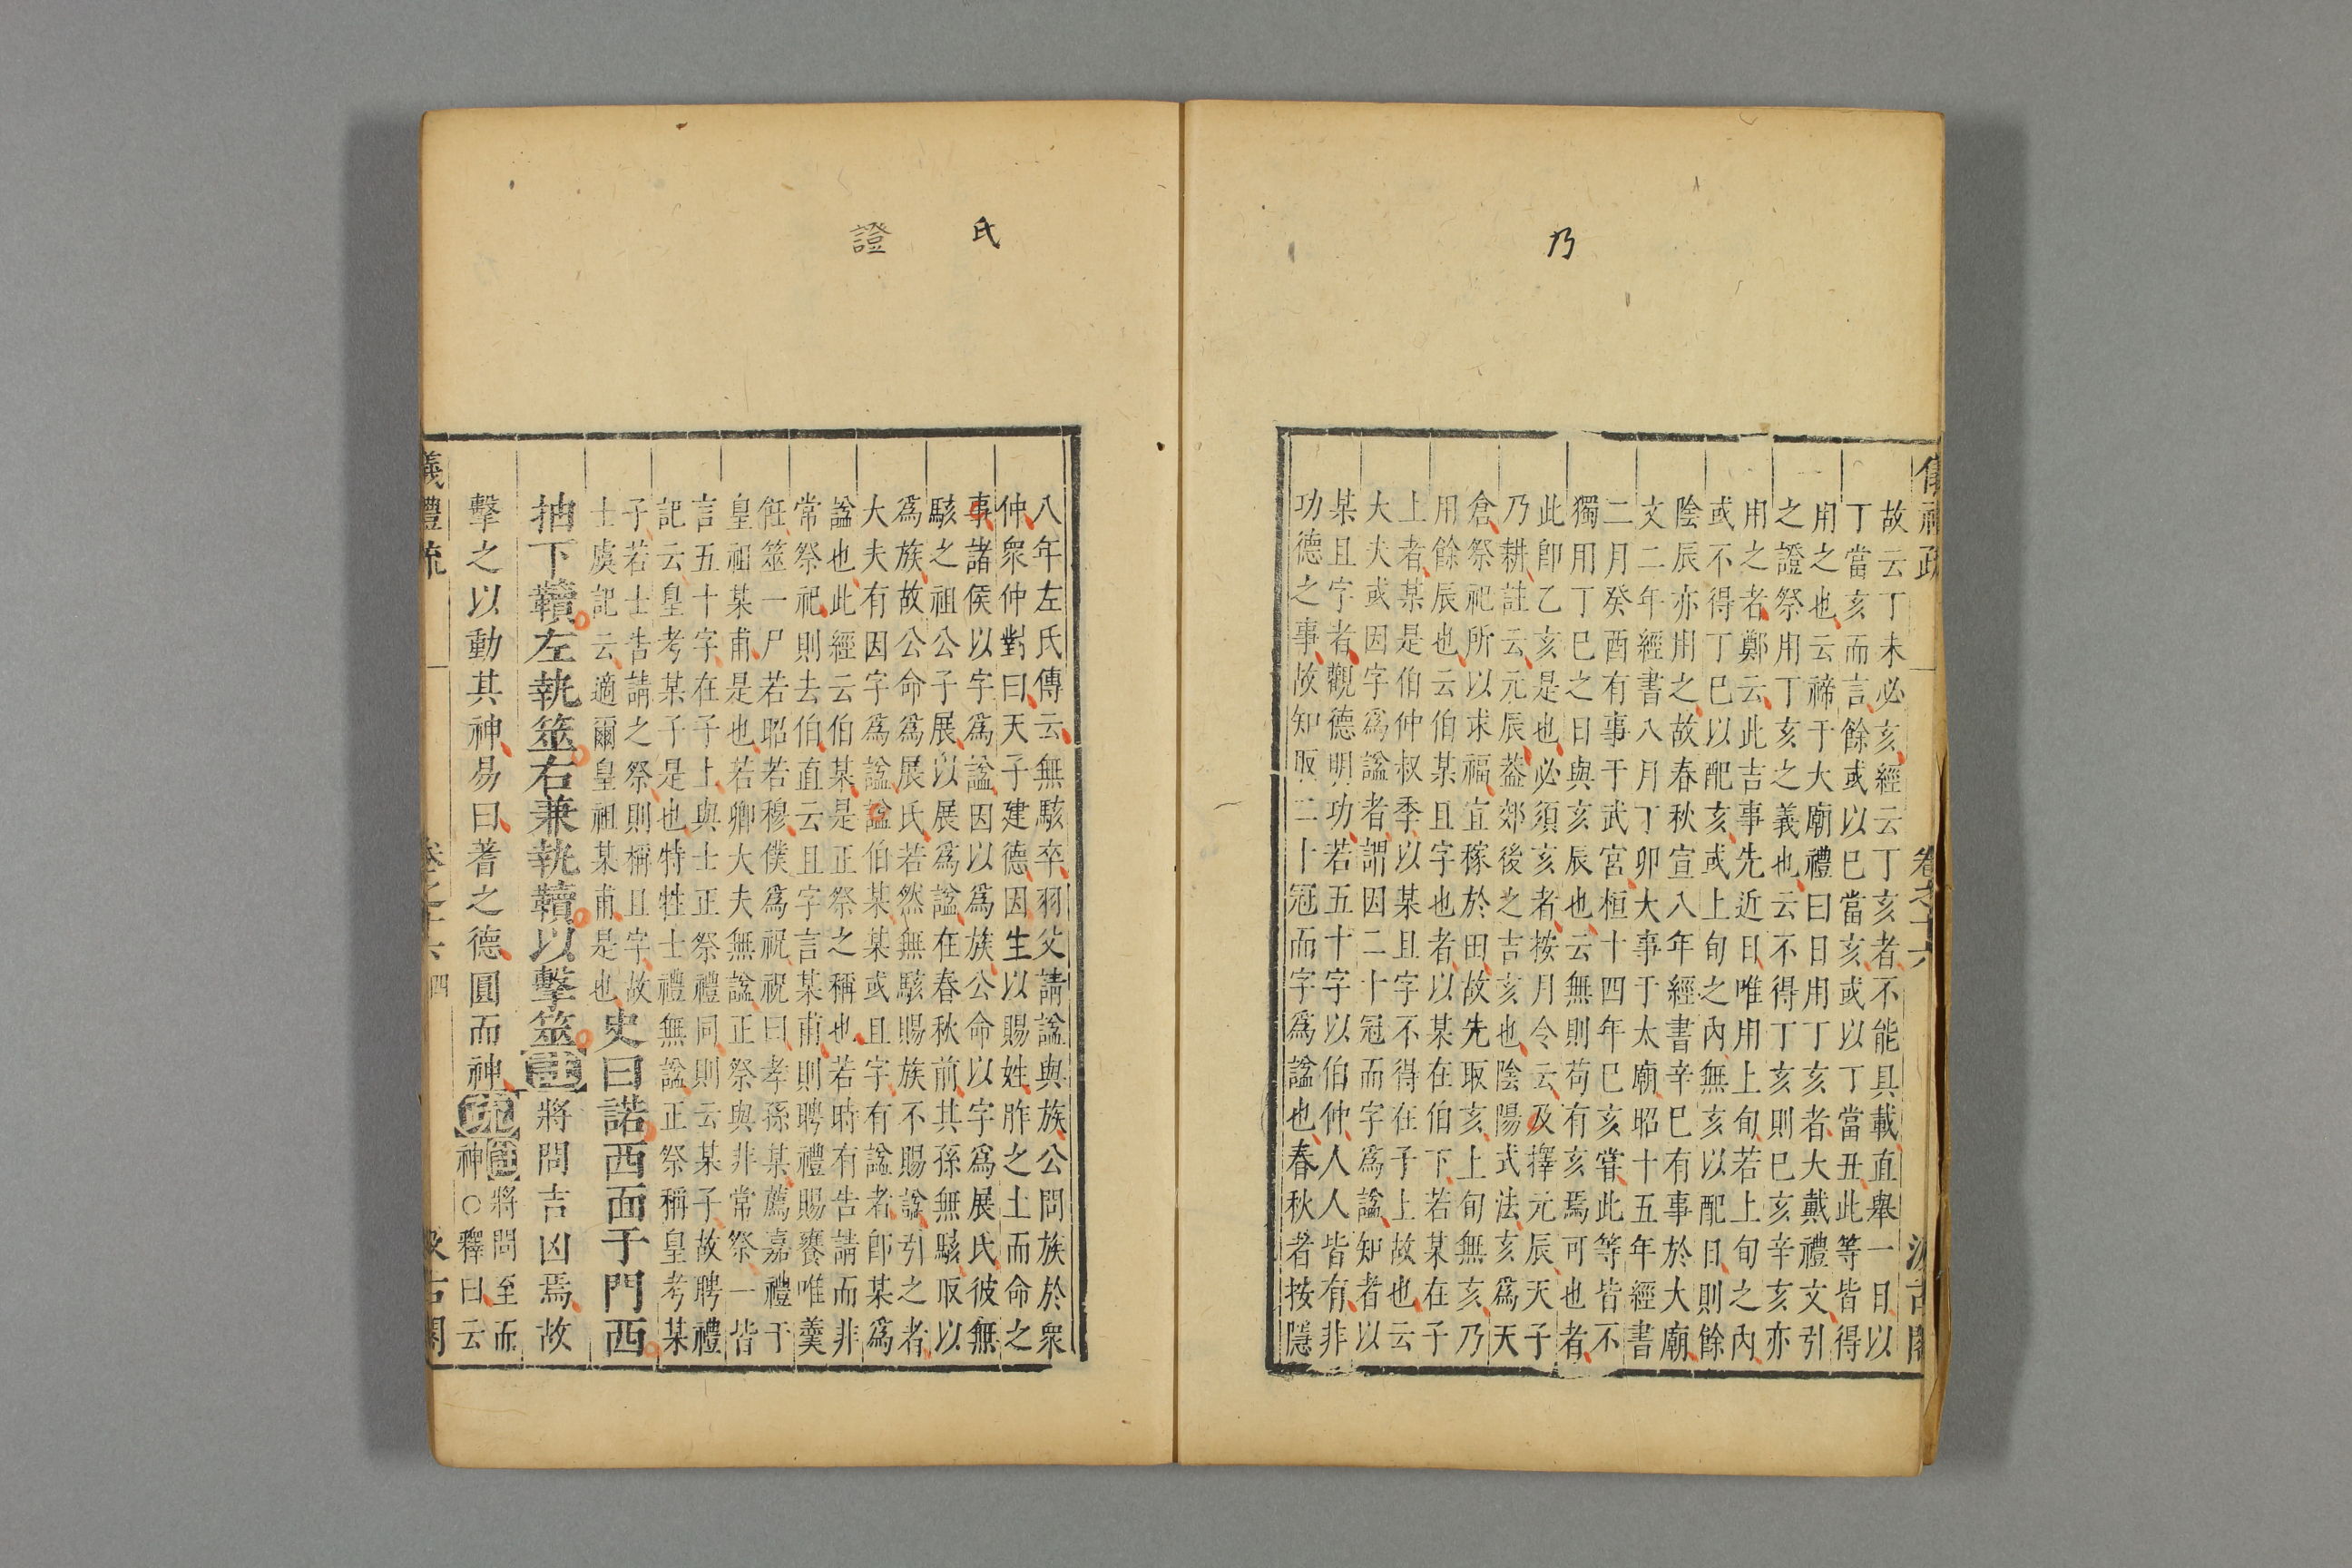 乃
儀禮疏 卷之十六 汲古閣
故云丁未必亥經云丁亥者不能具載直舉一日以
丁當亥而言餘或以巳當亥或以丁當丑此等皆得
用之也云禘于大廟禮曰日用丁亥者大戴禮文引
之證祭用丁亥之義也云不得丁亥則巳亥辛亥亦
用之者鄭云此吉事先近日唯用上旬若上旬之內
或不得丁巳以配亥或上旬之內無亥以配日則餘
陰辰亦用之故春秋宣八年經書辛巳有事於大廟
文二年經書八月丁卯大事于太廟昭十五年經書
二月癸酉有事于武宮桓十四年巳亥嘗此等皆不
獨用丁巳之日與亥辰也云無則苟有亥焉可也者
此卽乙亥是也必須亥者按月令云及擇元辰天子
乃耕註云元辰蓋郊後之吉亥也陰陽式法亥爲天
倉祭祀所以求福宜稼於田故先取亥上旬無亥乃
用餘辰也云伯某且字也者以某在伯下若某在子
上者某是伯仲叔季以某且字不得在子上故也云
大夫或因字爲諡者謂因二十冠而字爲諡知者以
某且字者觀德明功若五十字以伯仲人人皆有非
功德之事故知取二十冠而字爲諡也春秋者按隱
氏
證
八年左氏傳云無駭卒羽父請諡與族公問族於衆
仲衆仲對曰天子建德因生以賜姓胙之土而命之
事諸侯以字爲諡因以爲族公命以字爲展氏彼無
駭之祖公子展以展爲諡在春秋前其孫無駭取以
爲族故公命爲展氏若然無駭賜族不賜諡引之者
大夫有因字爲諡諡伯某某或且字有諡者卽某爲
諡也此經云伯某是正祭之稱也若時有告請而非
常祭祀則去伯直云且字言某甫則聘禮賜饔唯羹
飪筮一尸若昭若穆僕爲祝祝曰孝孫某薦嘉禮于
皇祖某甫是也若卿大夫無諡正祭與非常祭一皆
言五十字在子上與士正祭禮同則云某子故聘禮
記云皇考某子是也特牲士禮無諡正祭稱皇考某
子若士告請之祭則稱且字故
士虞記云適爾皇祖某甫是也
史曰諾西面于門西
抽下韇左執筮右兼執韇以擊筮註將問吉凶焉故
擊之以動其神易曰蓍之德圓而神疏註將問至而
神○釋曰云
儀禮疏 卷之十六 四 汲古閣